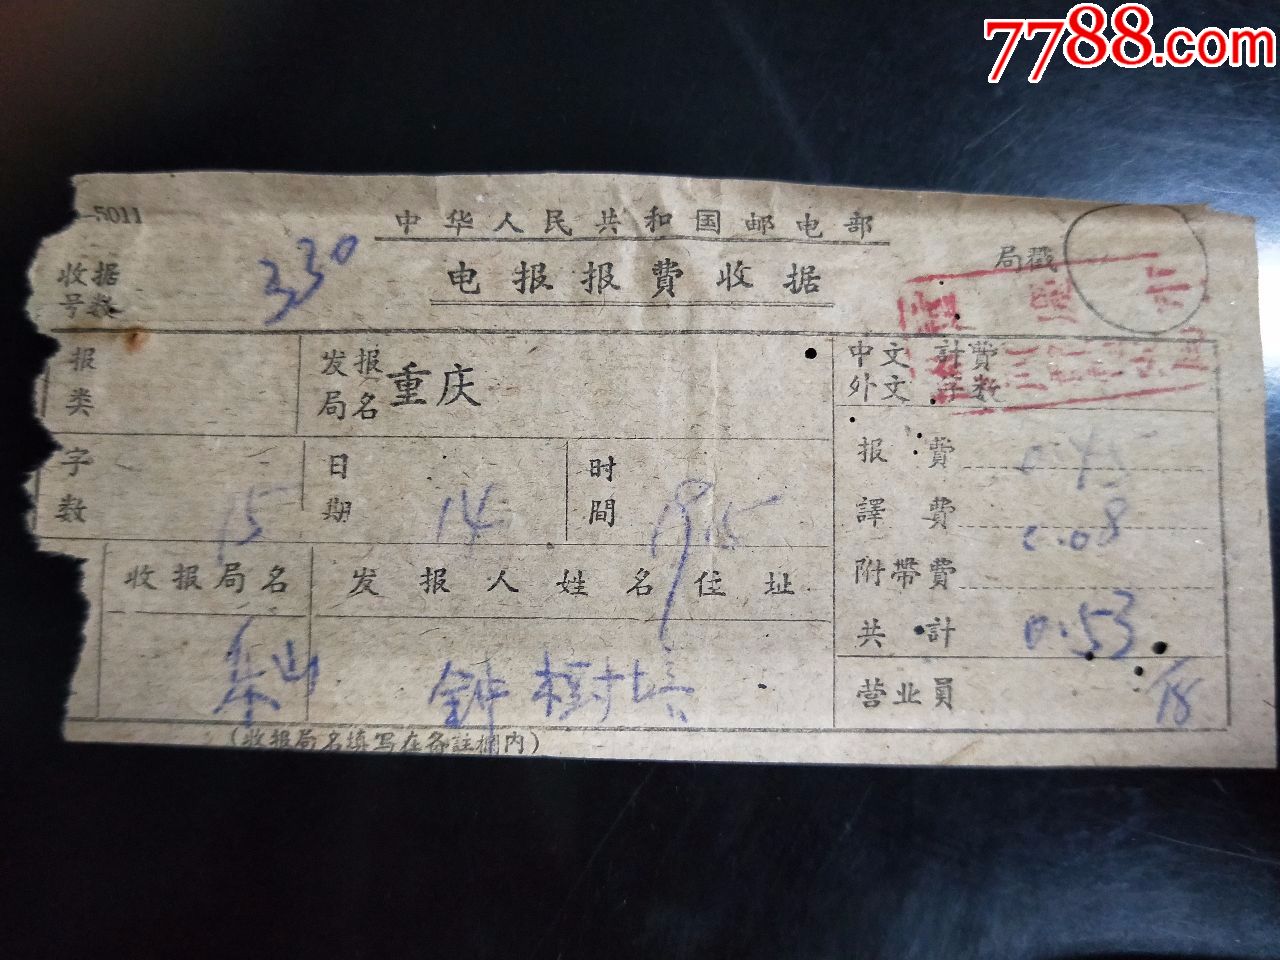 7788.com
-5011
中华人民共和国邮电部
收据号数 330
电报报費收据
局戳
报类
发报局名 重庆
中文 外文 計費字数
字数 15
日期 14
时間 19 15
报費 0.45
譯費 0.08
附帶費
共計 0.53
收报局名
发报人姓名住址
乐山
鈡樹培
营业员 18
(收报局名填写在备註栏内)